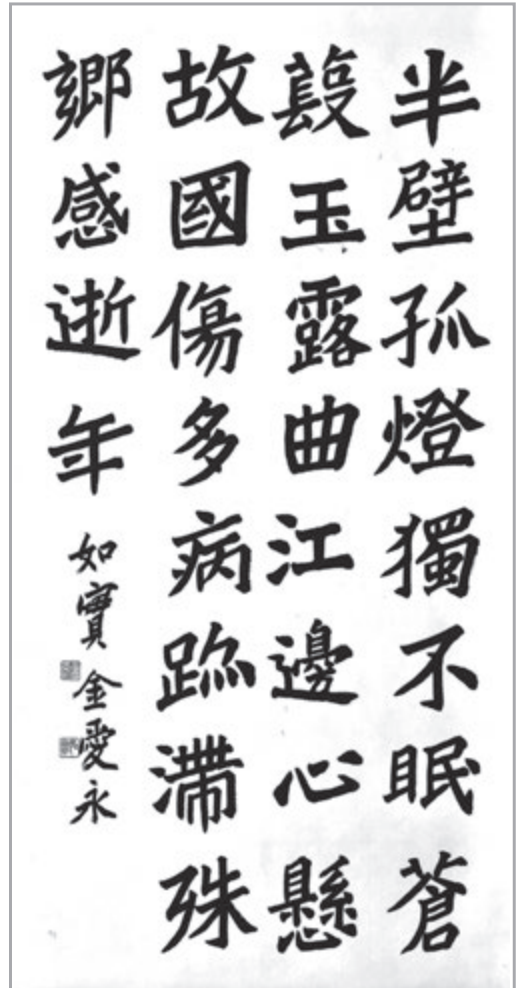 半壁孤燈獨不眠蒼
葭玉露曲江邊心懸
故國傷多病跡滯殊
鄉感逝年
如實 金愛永